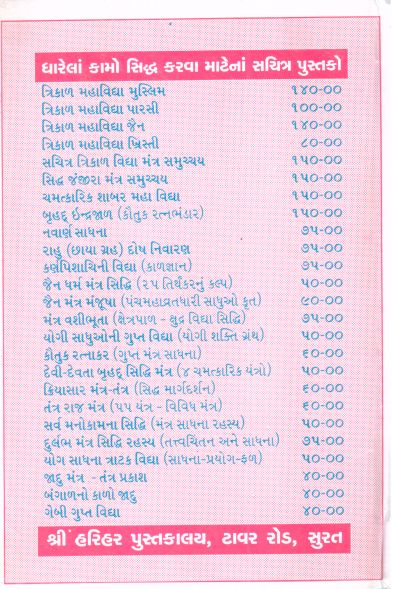 ધારેલાં કામો સિદ્ધ કરવા માટેનાં સચિત્ર પુસ્તકો
ત્રિકાળ મહાવિદ્યા મુસ્લિમ ૧૪૦-૦૦
ત્રિકાળ મહાવિદ્યા પારસી ૧૦૦-૦૦
ત્રિકાળ મહાવિદ્યા જૈન ૧૪૦-૦૦
ત્રિકાળ મહાવિદ્યા ખ્રિસ્તી ૮૦-૦૦
સચિત્ર ત્રિકાળ વિદ્યા મંત્ર સમુચ્ચય ૧૫૦-૦૦
સિદ્ધ જંજીરા મંત્ર સમુચ્ચય ૧૫૦-૦૦
ચમત્કારિક શાબર મહા વિદ્યા ૧૫૦-૦૦
બૃહદ્ ઈન્દ્રજાળ (કૌતુક રત્નભંડાર) ૧૫૦-૦૦
નવાર્ણ સાધના ૭૫-૦૦
રાહુ (છાયા ગ્રહ) દોષ નિવારણ ૭૫-૦૦
કર્ણપિશાચિની વિદ્યા (કાળજ્ઞાન) ૭૫-૦૦
જૈન ધર્મ મંત્ર સિદ્ધિ (૨૫ તિર્થંકરનું કલ્પ) ૫૦-૦૦
જૈન મંત્ર મંજૂષા (પંચમહાવ્રતધારી સાધુઓ કૃત) ૯૦-૦૦
મંત્ર વશીભૂતા (ક્ષેત્રપાળ - ક્ષુદ્ર વિદ્યા સિદ્ધિ) ૭૫-૦૦
યોગી સાધુઓની ગુપ્ત વિદ્યા (યોગી શક્તિ ગ્રંથ) ૫૦-૦૦
કૌતુક રત્નાકર (ગુપ્ત મંત્ર સાધના) ૬૦-૦૦
દેવી-દેવતા બૃહદ્ સિદ્ધિ મંત્ર (૪ ચમત્કારિક યંત્રો) ૫૦-૦૦
ક્રિયાસાર મંત્ર-તંત્ર (સિદ્ધ માર્ગદર્શન) ૬૦-૦૦
તંત્ર રાજ મંત્ર (૫૫ યંત્ર - વિવિધ મંત્ર) ૬૦-૦૦
સર્વ મનોકામના સિદ્ધિ (મંત્ર સાધના રહસ્ય) ૫૦-૦૦
દુર્લભ મંત્ર સિદ્ધિ રહસ્ય (તત્ત્વચિંતન અને સાધના) ૭૫-૦૦
યોગ સાધના ત્રાટક વિદ્યા (સાધના-પ્રયોગ-ફળ) ૫૦-૦૦
જાદુ મંત્ર - તંત્ર પ્રકાશ ૪૦-૦૦
બંગાળનો કાળો જાદુ ૪૦-૦૦
ગેબી ગુપ્ત વિદ્યા ૪૦-૦૦
શ્રી હરિહર પુસ્તકાલય, ટાવર રોડ, સુરત